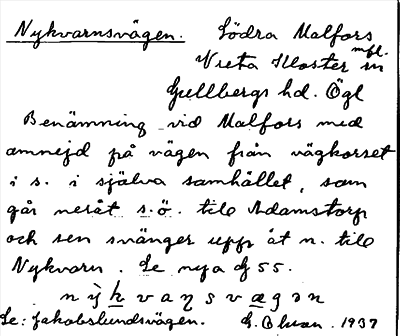 Nykvarnsvägen. Södra Malfors
Vreta Kloster sn mfl.
Gullbergs hd. Ögl
Benämning vid Malfors med
omnejd på vägen från vägkorset
i s. i själva samhället, som
går neråt s.ö. till Adamstorp
och sen svänger upp åt n. till
Nykvarn. Se nya G 55.
Se: Jakobslundsvägen. 1937